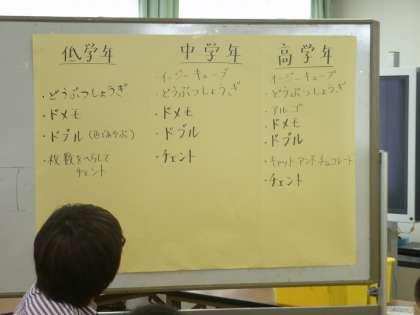 低学年
・どうぶつしょうぎ
・ドメモ
・ドブル(色であそぶ)
・枚数をへらして
チェント
中学年
・イージーキューブ
・どうぶつしょうぎ
・ドメモ
・ドブル
・チェント
高学年
・イージーキューブ
・どうぶつしょうぎ
・アルゴ
・ドメモ
・ドブル
・キャットアンドチョコレート
・チェント